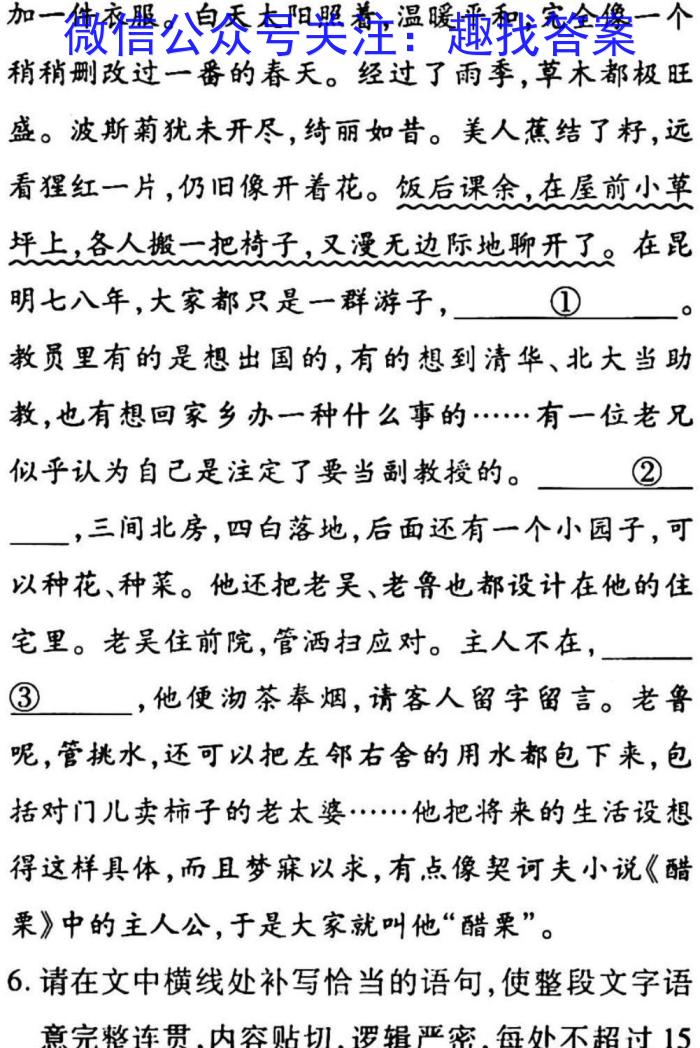 加一件衣服。白天太阳照着,温暖平和,完全像一个
微信公众号关注:趣找答案
稍稍删改过一番的春天。经过了雨季,草木都极旺
盛。波斯菊犹未开尽,绮丽如昔。美人蕉结了籽,远
看猩红一片,仍旧像开着花。饭后课余,在屋前小草
坪上,各人搬一把椅子,又漫无边际地聊开了。在昆
明七八年,大家都只是一群游子,①。
教员里有的是想出国的,有的想到清华、北大当助
教,也有想回家乡办一种什么事的……有一位老兄
似乎认为自己是注定了要当副教授的。②
,三间北房,四白落地,后面还有一个小园子,可
以种花、种菜。他还把老吴、老鲁也都设计在他的住
宅里。老吴住前院,管洒扫应对。主人不在,
③,他便沏茶奉烟,请客人留字留言。老鲁
呢,管挑水,还可以把左邻右舍的用水都包下来,包
括对门儿卖柿子的老太婆……他把将来的生活设想
得这样具体,而且梦寐以求,有点像契诃夫小说《醋
栗》中的主人公,于是大家就叫他“醋栗”。
6. 请在文中横线处补写恰当的语句,使整段文字语
意完整连贯,内容贴切,逻辑严密,每处不超过 15